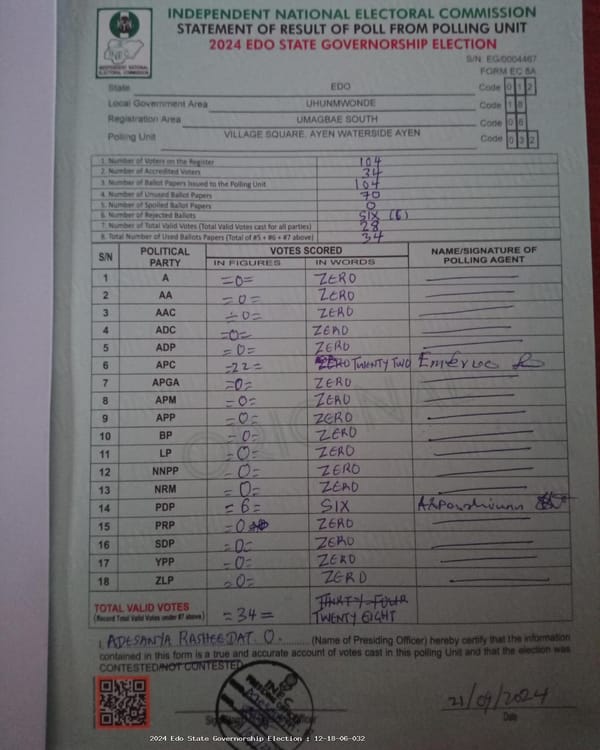 INDEPENDENT NATIONAL ELECTORAL COMMISSION
STATEMENT OF RESULT OF POLL FROM POLLING UNIT
2024 EDO STATE GOVERNORSHIP ELECTION
INDEPENDENT NATIONAL ELECTORAL COMMISSION
S/N: EG/0004467
FORM EC 8A
State EDO Code 0 1 2
Local Government Area UHUNMWONDE Code 1 8
Registration Area UMAGBAE SOUTH Code 0 6
Polling Unit VILLAGE SQUARE, AYEN WATERSIDE AYEN Code 0 3 2
1. Number of Voters on the Register 104
2. Number of Accredited Voters 34
3. Number of Ballot Papers Issued to the Polling Unit 104
4. Number of Unused Ballot Papers 70
5. Number of Spoiled Ballot Papers 0
6. Number of Rejected Ballots SIX (6)
7. Number of Total Valid Votes (Total Valid Votes cast for all parties) 28
8. Total Number of Used Ballots Papers (Total of #5 + #6 + #7 above) 34
S/N POLITICAL PARTY VOTES SCORED NAME/SIGNATURE OF POLLING AGENT
IN FIGURES IN WORDS
1 A =0= ZERO
2 AA =0= ZERO
3 AAC =0= ZERO
4 ADC =0= ZERO
5 ADP =0= ZERO
6 APC =22= ZERO TWENTY TWO
7 APGA =0= ZERO
8 APM =0= ZERO
9 APP =0= ZERO
10 BP =0= ZERO
11 LP =0= ZERO
12 NNPP =0= ZERO
13 NRM =0= ZERO
14 PDP =6= SIX
15 PRP =0 ZERO
16 SDP =0= ZERO
17 YPP =0= ZERO
18 ZLP =0= ZERO
TOTAL VALID VOTES THIRTY FOUR
(Record Total Valid Votes under #7 above) =34= TWENTY EIGHT
I, ADESANYA RASHEEDAT. O. (Name of Presiding Officer) hereby certify that the information
contained in this form is a true and accurate account of votes cast in this polling Unit and that the election was
CONTESTED/NOT CONTESTED
INEC
21/09/2024
Date
2024 Edo State Governorship Election : 12-18-06-032